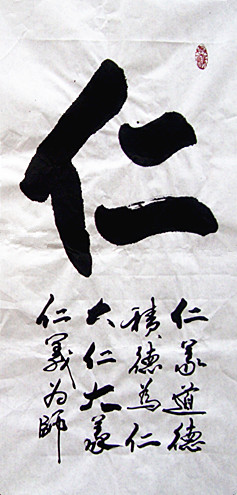 仁
仁義道德
積德為仁
大仁大義
仁義為師